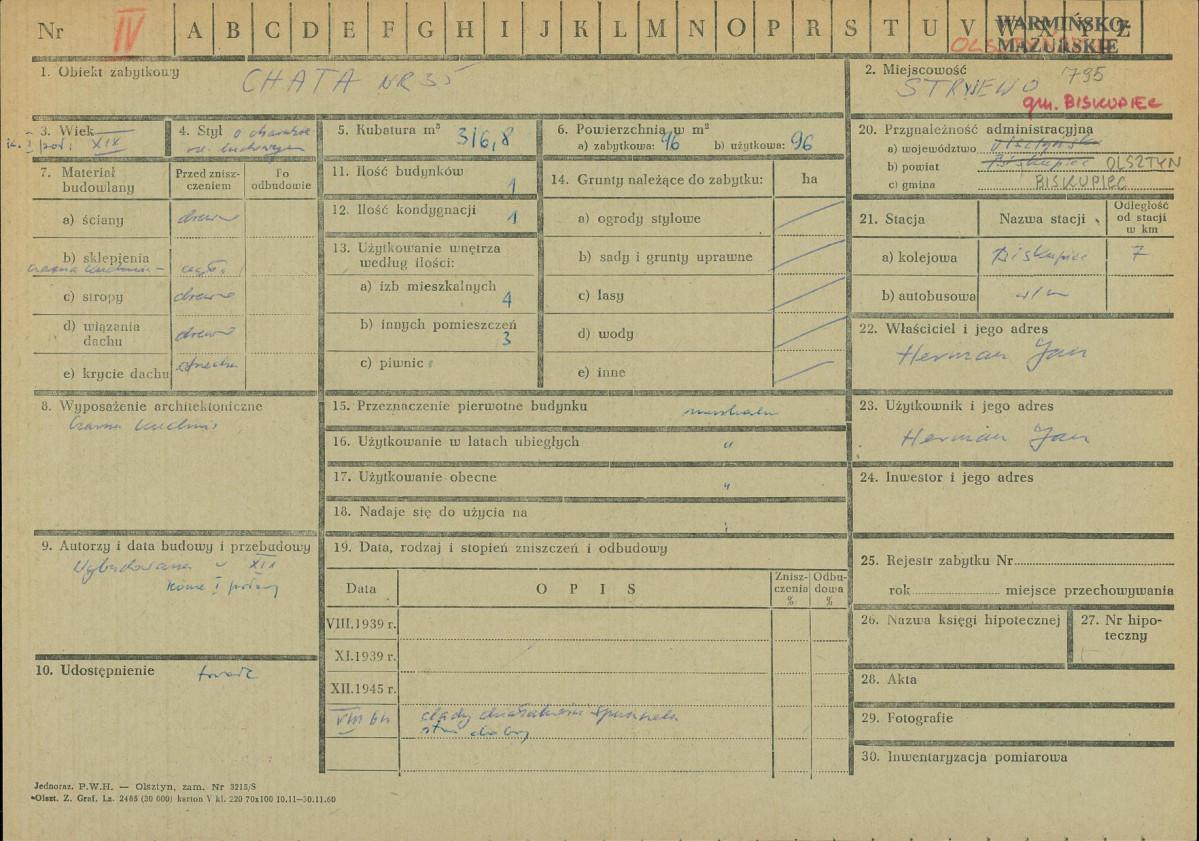 Nr IV A B C D E F G H I J K L M N O P R S T U V W X Y Z
WARMIŃSKO-
MAZURSKIE
1. Obiekt zabytkowy CHATA NR 35
2. Miejscowość 795
STRYJEWO
gm. BISKUPIEC
3. Wiek
k. I poł. XIX
4. Styl o charakt.
ludowym
5. Kubatura m³ 316,8
6. Powierzchnia w m²
a) zabytkowa: 96 b) użytkowa: 96
7. Materiał
budowlany
Przed znisz-
czeniem
Po
odbudowie
a) ściany drewno
b) sklepienia
czarna kuchnia - cegła
c) stropy drewno
d) wiązania
dachu drewno
e) krycie dachu
8. Wyposażenie architektoniczne
Czarna kuchnia
9. Autorzy i data budowy i przebudowy
Wybudowana w XIX
koniec I połowy
10. Udostępnienie
11. Ilość budynków 1
12. Ilość kondygnacji 1
13. Użytkowanie wnętrza
według ilości:
a) izb mieszkalnych
4
b) innych pomieszczeń
3
c) piwnic
14. Grunty należące do zabytku: ha
a) ogrody stylowe
b) sady i grunty uprawne
c) lasy
d) wody
e) inne
15. Przeznaczenie pierwotne budynku
16. Użytkowanie w latach ubiegłych "
17. Użytkowanie obecne "
18. Nadaje się do użycia na
19. Data, rodzaj i stopień zniszczeń i odbudowy
Data O P I S Znisz-
czenia
% Odbu-
dowa
%
VIII.1939 r.
XI.1939 r.
XII.1945 r.
VIII 64
stan dobry
20. Przynależność administracyjna
a) województwo olsztyńskie
b) powiat Biskupiec OLSZTYN
c) gmina BISKUPIEC
21. Stacja Nazwa stacji Odległość
od stacji
w km
a) kolejowa Biskupiec 7
b) autobusowa w/m
22. Właściciel i jego adres
Herman Jan
23. Użytkownik i jego adres
Herman Jan
24. Inwestor i jego adres
25. Rejestr zabytku Nr
rok miejsce przechowywania
26. Nazwa księgi hipotecznej
27. Nr hipo-
teczny
28. Akta
29. Fotografie
30. Inwentaryzacja pomiarowa
Jednoraz. P.W.H. — Olsztyn, zam. Nr 3215/S
Olszt. Z. Graf. Lz. 2465 (30 000) karton V kl. 220 70x100 10.11—30.11.60